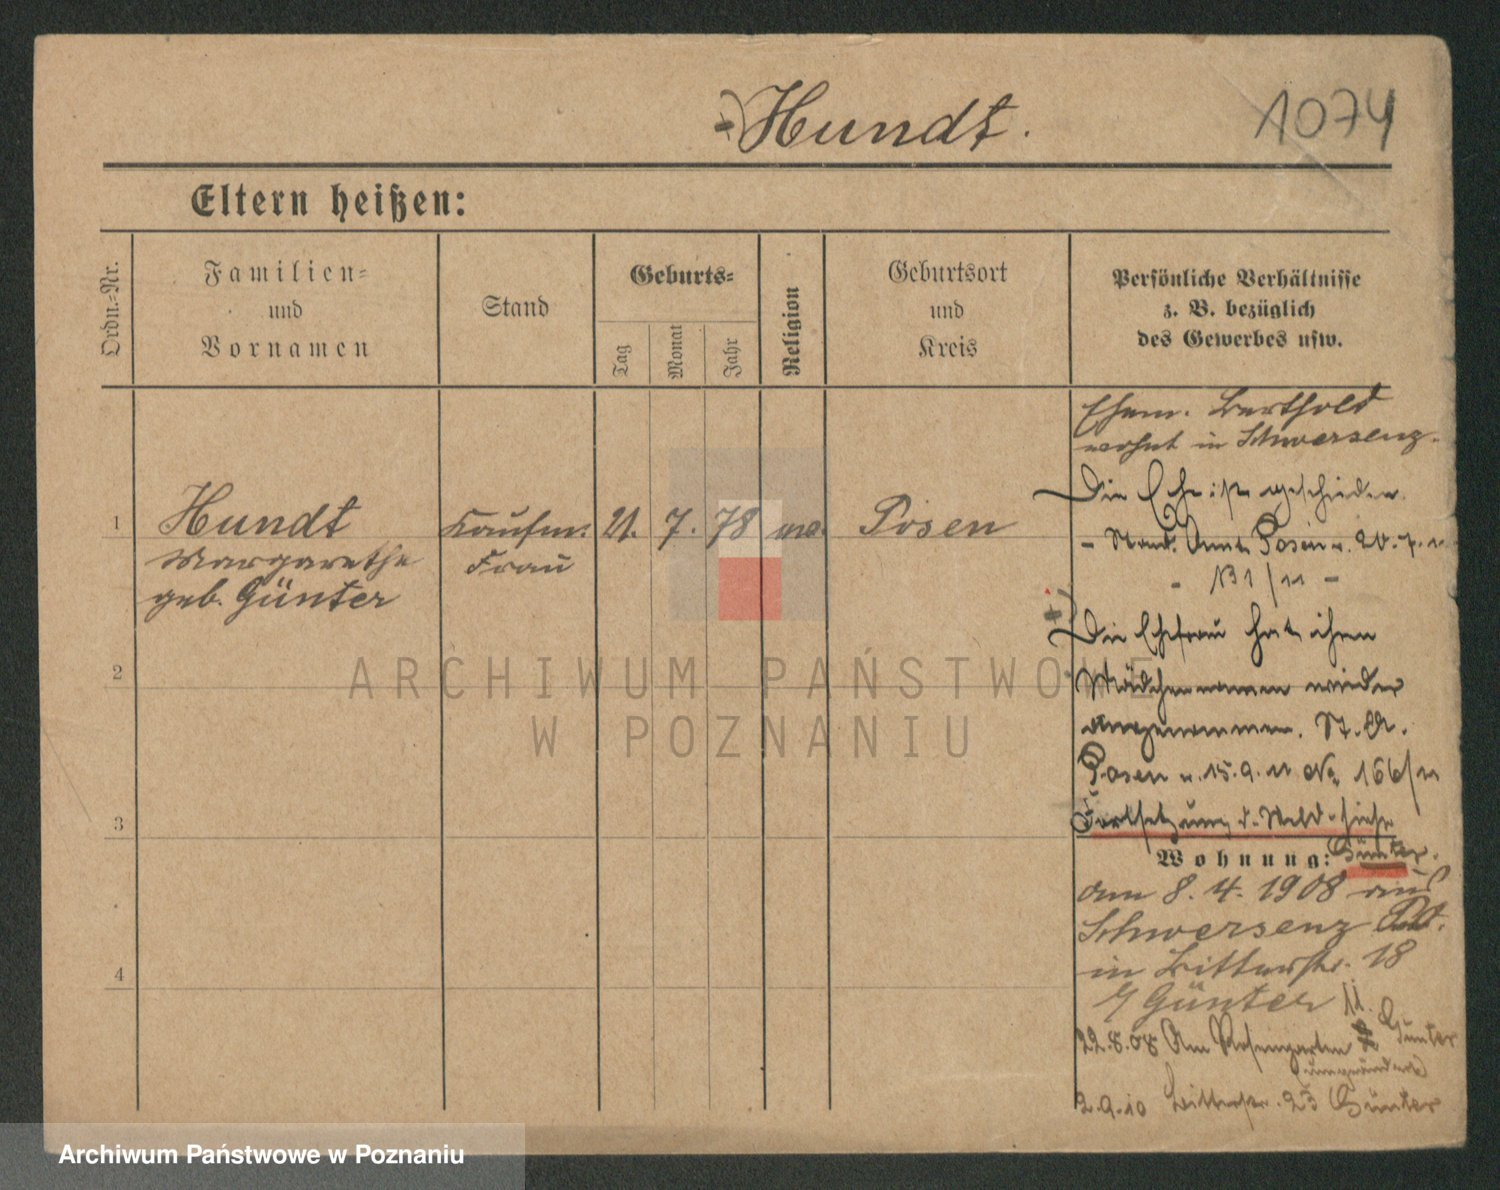 Hundt.
1074
Eltern heißen:
Ordn.-Nr.
Familien-
und
Vornamen
Stand
Geburts-
Tag
Monat
Jahr
Religion
Geburtsort
und
Kreis
Persönliche Verhältnisse
z. B. bezüglich
des Gewerbes usw.
Ehem. Berthold
wohnt in Schwersenz.
Die Ehe ist geschieden
1
Hundt
Kaufm.
21.
7.
78
Posen
Margarethe
Frau
geb. Günter
- Stand. Amt Posen v. 20.7.11
- B 1/11 -
Die Ehefrau hat ihren
2
Mädchennamen wieder
angenommen. St. A.
Posen v. 15.9.11 No 166/11
3
Fortsetzung d. Meld. siehe
Wohnung: Günter.
am 8.4.1908 aus
Schwersenz
4
in Bitterstr. 18
b/ Günter II.
22.8.08 Am Rosengarten Günter
umgeändert
2.9.10 Bitterstr. 23 Günter
ARCHIWUM PAŃSTWOWE
W POZNANIU
Archiwum Państwowe w Poznaniu